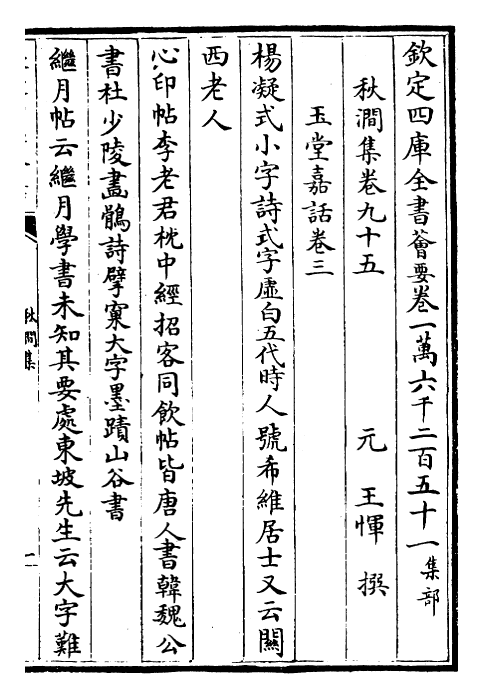 欽定四庫全書薈要卷一萬六千二百五十一集部
秋澗集卷九十五　元　王惲　撰
玉堂嘉話卷三
楊凝式小字詩式字虛白五代時人號希維居士又云關
西老人
心印帖李老君枕中經招客同飲帖皆唐人書韓魏公
書杜少陵畫鶻詩擘窠大字墨蹟山谷書
繼月帖云繼月學書未知其要處東坡先生云大字難
秋澗集
一